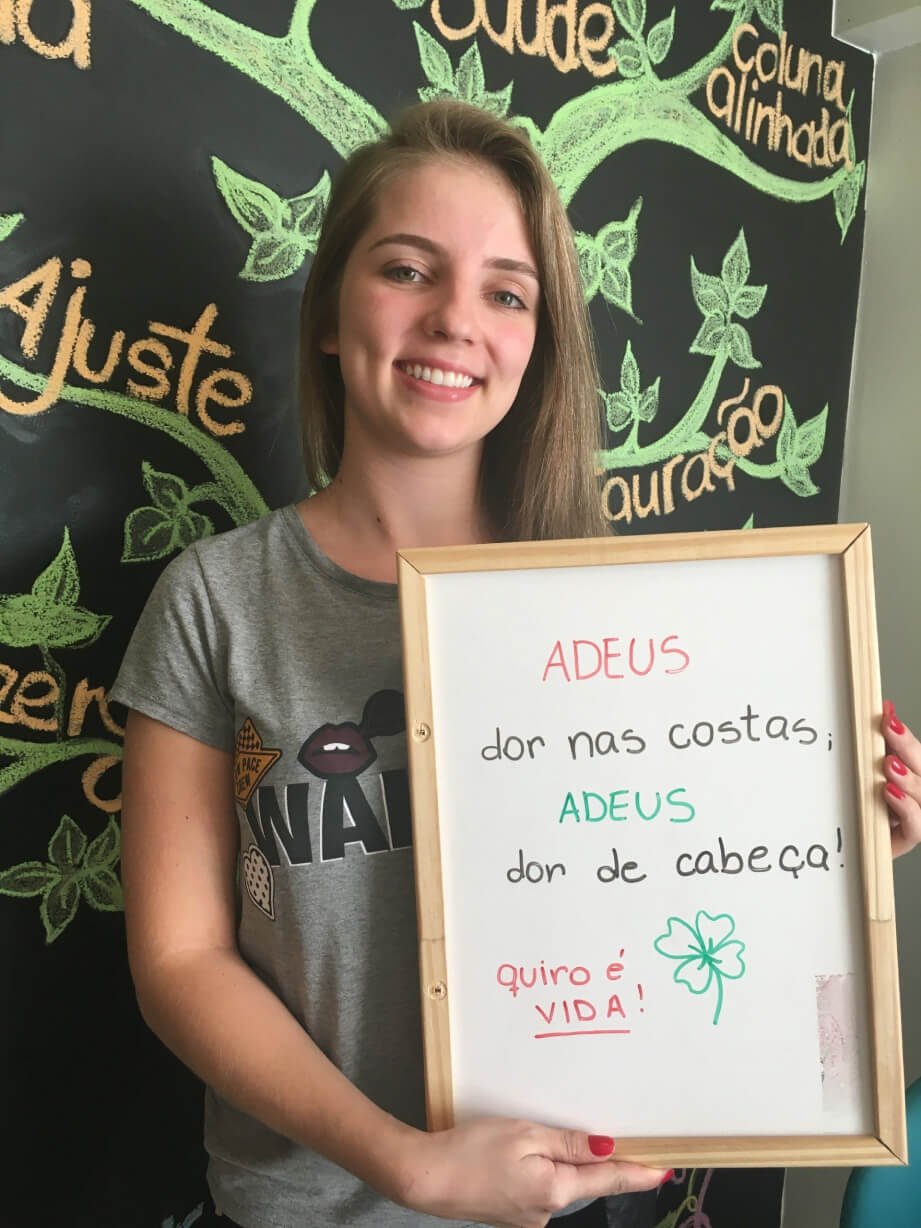 Saúde
coluna
alinhada
Ajuste
ADEUS
dor nas costas;
ADEUS
dor de cabeça!
quiro é
VIDA!